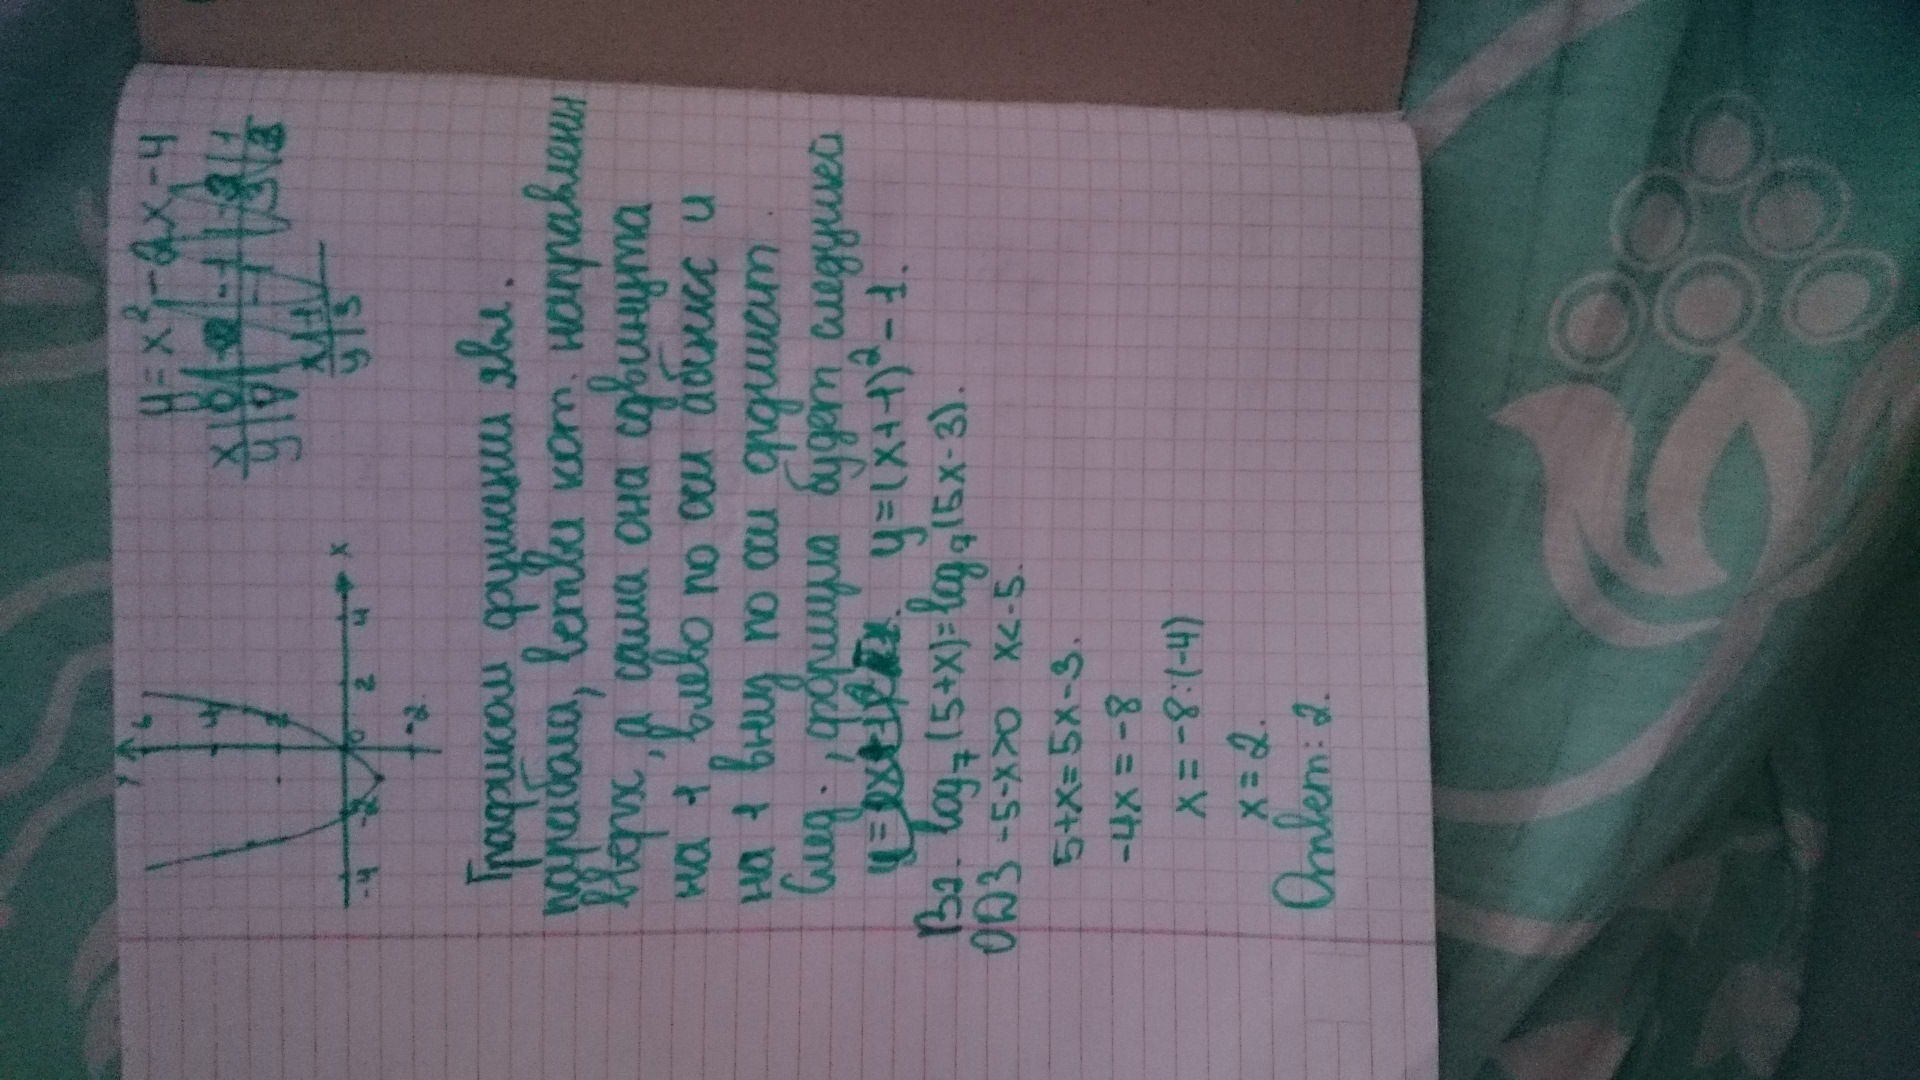 y = x² - 2x - 4
x
y
x | 1
y | 3
y
6
4
2
x
-4 -2 0 2 4
-2
Графиком функции явл.
парабола, ветви кот. направлены
вверх, а сама она сдвинута
на 1 влево по оси абсцисс и
на 1 вниз по оси ординат.
След., формула будет следующей
y = y=(x+1)²-1.
B2. log₇(5+x)=log₇(5x-3).
ОДЗ -5-x>0 x<-5.
5+x=5x-3.
-4x=-8
x=-8:(-4)
x=2.
Ответ: 2.